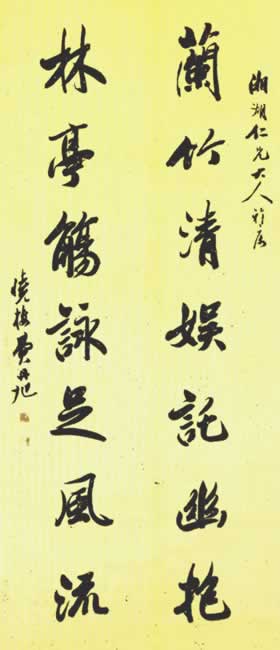 湘湖仁兄大人雅屬
蘭竹清娛託幽抱
林亭觴詠足風流
曉樓費丹旭